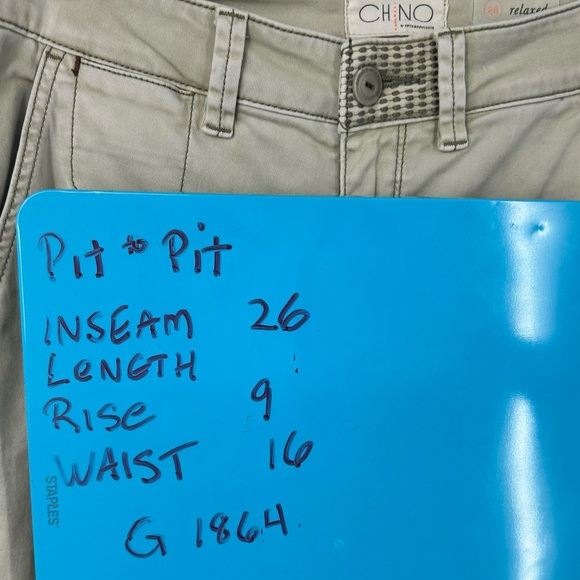 CHINO
relaxed
Pit to Pit
INSEAM 26
LENGTH
RISE 9
WAIST 16
STAPLES
G 1864